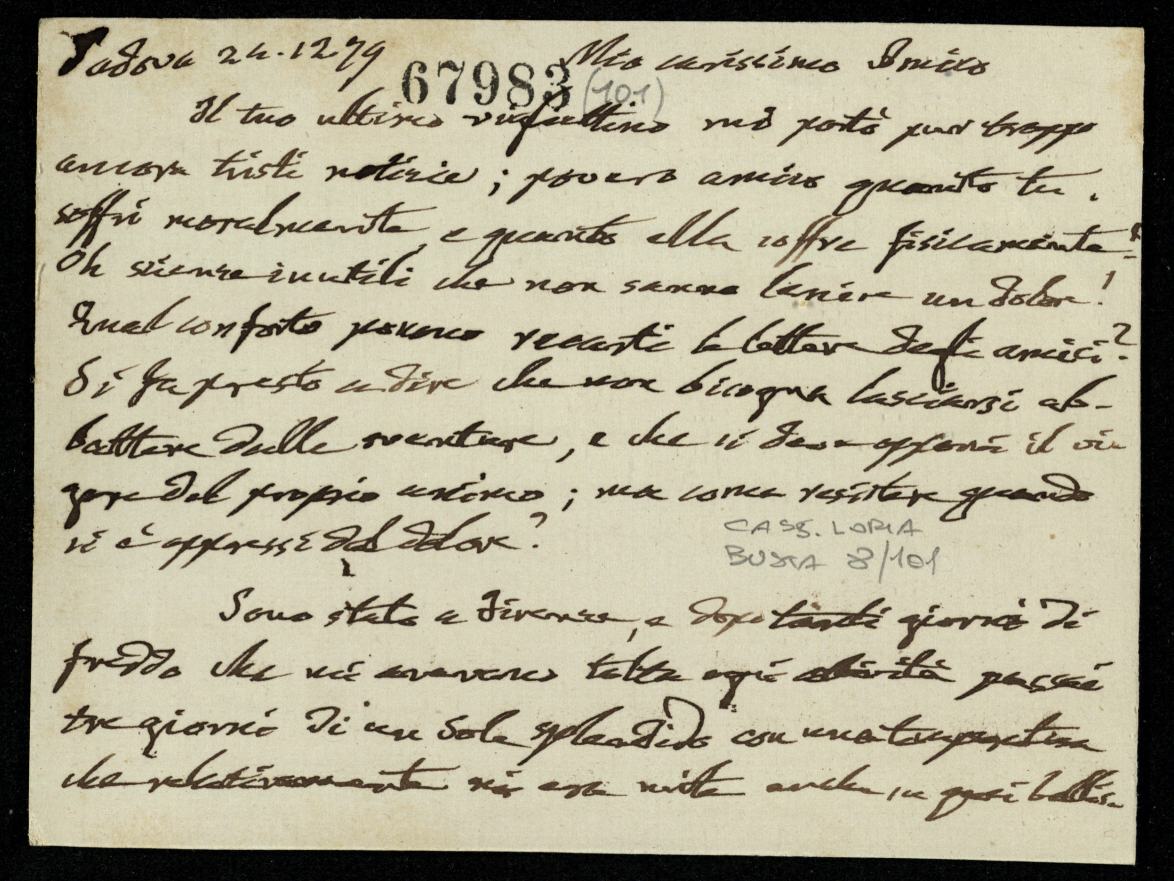 Padova 24.12.79
67983 (101)
Mio carissimo Amico
Il tuo ultimo vigliettino mi portò pur troppo
ancora tristi notizie; povero amico quanto tu
soffri moralmente, e quanto ella soffre fisicamente!
Oh scienze inutili che non sanno lenire un dolor!
Qual conforto possono recarti le lettere degli amici?
Si fa presto a dire che non bisogna lasciarsi ab-
battere dalle sventure, e che si deve opporre il vi-
gore del proprio animo; ma come resistere quando
si è oppressi dal dolore?
CASS. LORIA
BUSTA 8/101
Sono stato a Firenze, e dopo tanti giorni di
freddo che mi avevano tolta ogni attività passai
tre giorni di un Sole splendido con una temperatura
che relativamente mi era mite anche in quei